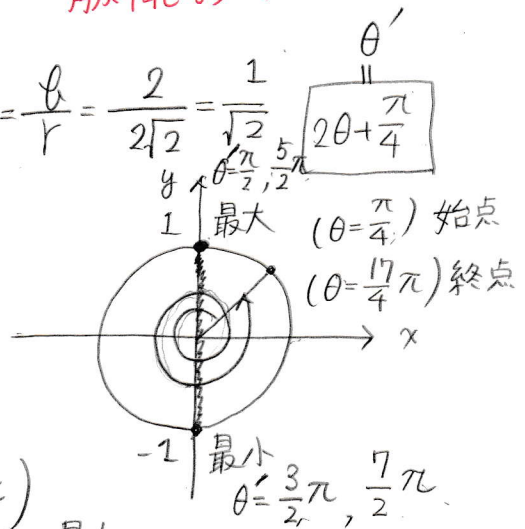 θ′
= b/r = 2/2√2 = 1/√2
||
2θ+π/4
θ′=π/2, 5/2π
y
1 最大
(θ=π/4) 始点
(θ=17/4π) 終点
x
-1 最小
θ′=3/2π, 7/2π